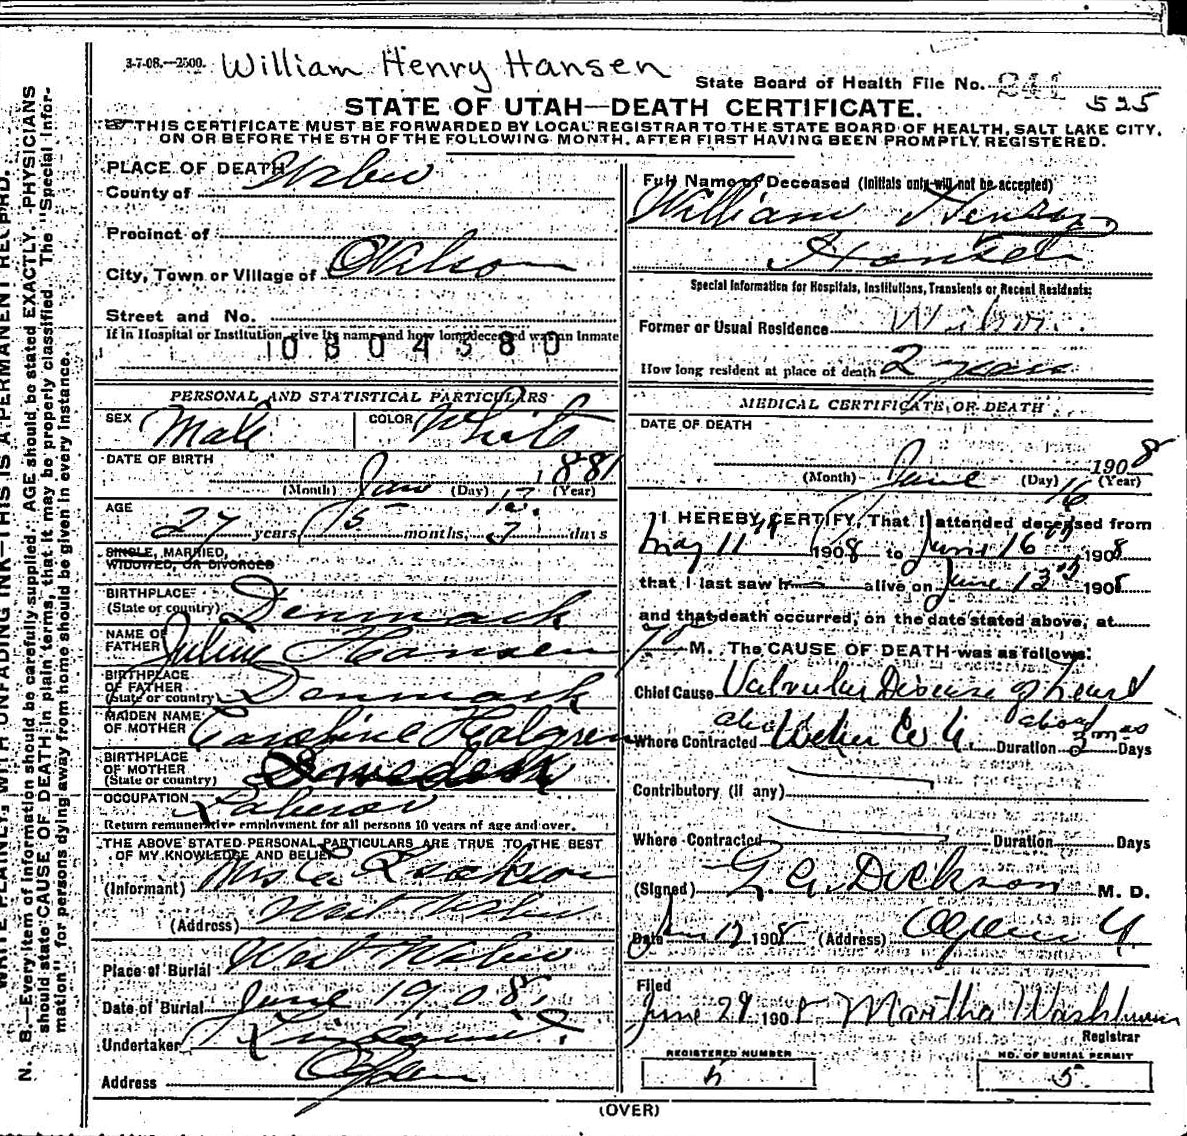 3-7-08.—2500. William Henry Hansen
State Board of Health File No. 241 525
STATE OF UTAH—DEATH CERTIFICATE.
THIS CERTIFICATE MUST BE FORWARDED BY LOCAL REGISTRAR TO THE STATE BOARD OF HEALTH, SALT LAKE CITY,
ON OR BEFORE THE 5TH OF THE FOLLOWING MONTH, AFTER FIRST HAVING BEEN PROMPTLY REGISTERED.
PLACE OF DEATH
County of Weber
Precinct of
City, Town or Village of Wilson
Street and No.
If in Hospital or Institution, give its name and how long deceased was an inmate
PERSONAL AND STATISTICAL PARTICULARS
SEX Male COLOR White
DATE OF BIRTH
(Month) Jan (Day) 13. (Year) 1881
AGE
27 years 5 months, 3 days
SINGLE, MARRIED,
WIDOWED, OR DIVORCED
BIRTHPLACE
(State or country) Denmark
NAME OF
FATHER Julius Hansen
BIRTHPLACE
OF FATHER
(State or country) Denmark
MAIDEN NAME
OF MOTHER Caroline Holgren
BIRTHPLACE
OF MOTHER
(State or country) Sweden
OCCUPATION Laborer
Return remunerative employment for all persons 10 years of age and over.
THE ABOVE STATED PERSONAL PARTICULARS ARE TRUE TO THE BEST
OF MY KNOWLEDGE AND BELIEF
(Informant)
(Address) West Weber
Place of Burial West Weber
Date of Burial June 19, 08.
Undertaker Lindquist
Address Ogden
Full Name of Deceased (Initials only will not be accepted)
William Henry
Hansen
Special Information for Hospitals, Institutions, Transients or Recent Residents:
Former or Usual Residence Wilson.
How long resident at place of death 2 years
MEDICAL CERTIFICATE OF DEATH
DATE OF DEATH
(Month) June (Day) 16 (Year) 1908
I HEREBY CERTIFY, That I attended deceased from
May 11th 1908 to June 16th 1908
that I last saw h alive on June 13th 1908
and that death occurred, on the date stated above, at
M. The CAUSE OF DEATH was as follows:
Chief Cause Valvular Disease of heart
Where Contracted Weber Co U. Duration about 3 mos Days
Contributory (if any)
Where Contracted Duration Days
(Signed) G. A. Dickson M. D.
Date 1908 (Address) Ogden U.
Filed
June 29 1908 Martha Washburn
Registrar
REGISTERED NUMBER
5
NO. OF BURIAL PERMIT
5
(OVER)
N. B.—Every item of information should be carefully supplied. AGE should be stated EXACTLY. PHYSICIANS
should state CAUSE OF DEATH in plain terms, that it may be properly classified. The "Special Infor-
mation" for persons dying away from home should be given in every instance.
WRITE PLAINLY, WITH UNFADING INK—THIS IS A PERMANENT RECORD.